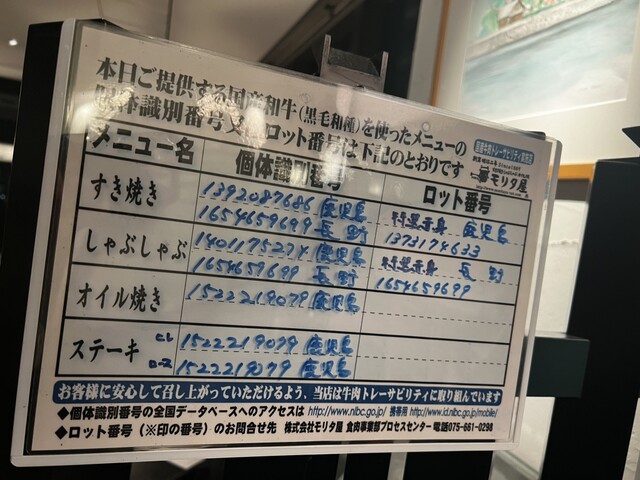 本日ご提供する国産和牛(黒毛和種)を使ったメニューの
個体識別番号又はロット番号は下記のとおりです
国産牛肉トレーサビリティ実施店
モリタ屋
メニュー名 個体識別番号 ロット番号
すき焼き 1392087686 鹿児島 特選赤身 鹿児島
1654659699 長野 1373174633
しゃぶしゃぶ 1401175274 鹿児島 特選赤身 長野
1654659699 長野 1654659699
オイル焼き 1522219079 鹿児島
ステーキ ヒレ 1522219079 鹿児島
ロース 1522219079 鹿児島
お客様に安心して召し上がっていただけるよう、当店は牛肉トレーサビリティに取り組んでいます
◆個体識別番号の全国データベースへのアクセスは http://www.nlbc.go.jp/ 携帯用 http://www.id.nlbc.go.jp/mobile/
◆ロット番号(※印の番号)のお問合せ先 株式会社モリタ屋 食肉事業部プロセスセンター 電話075-661-0298